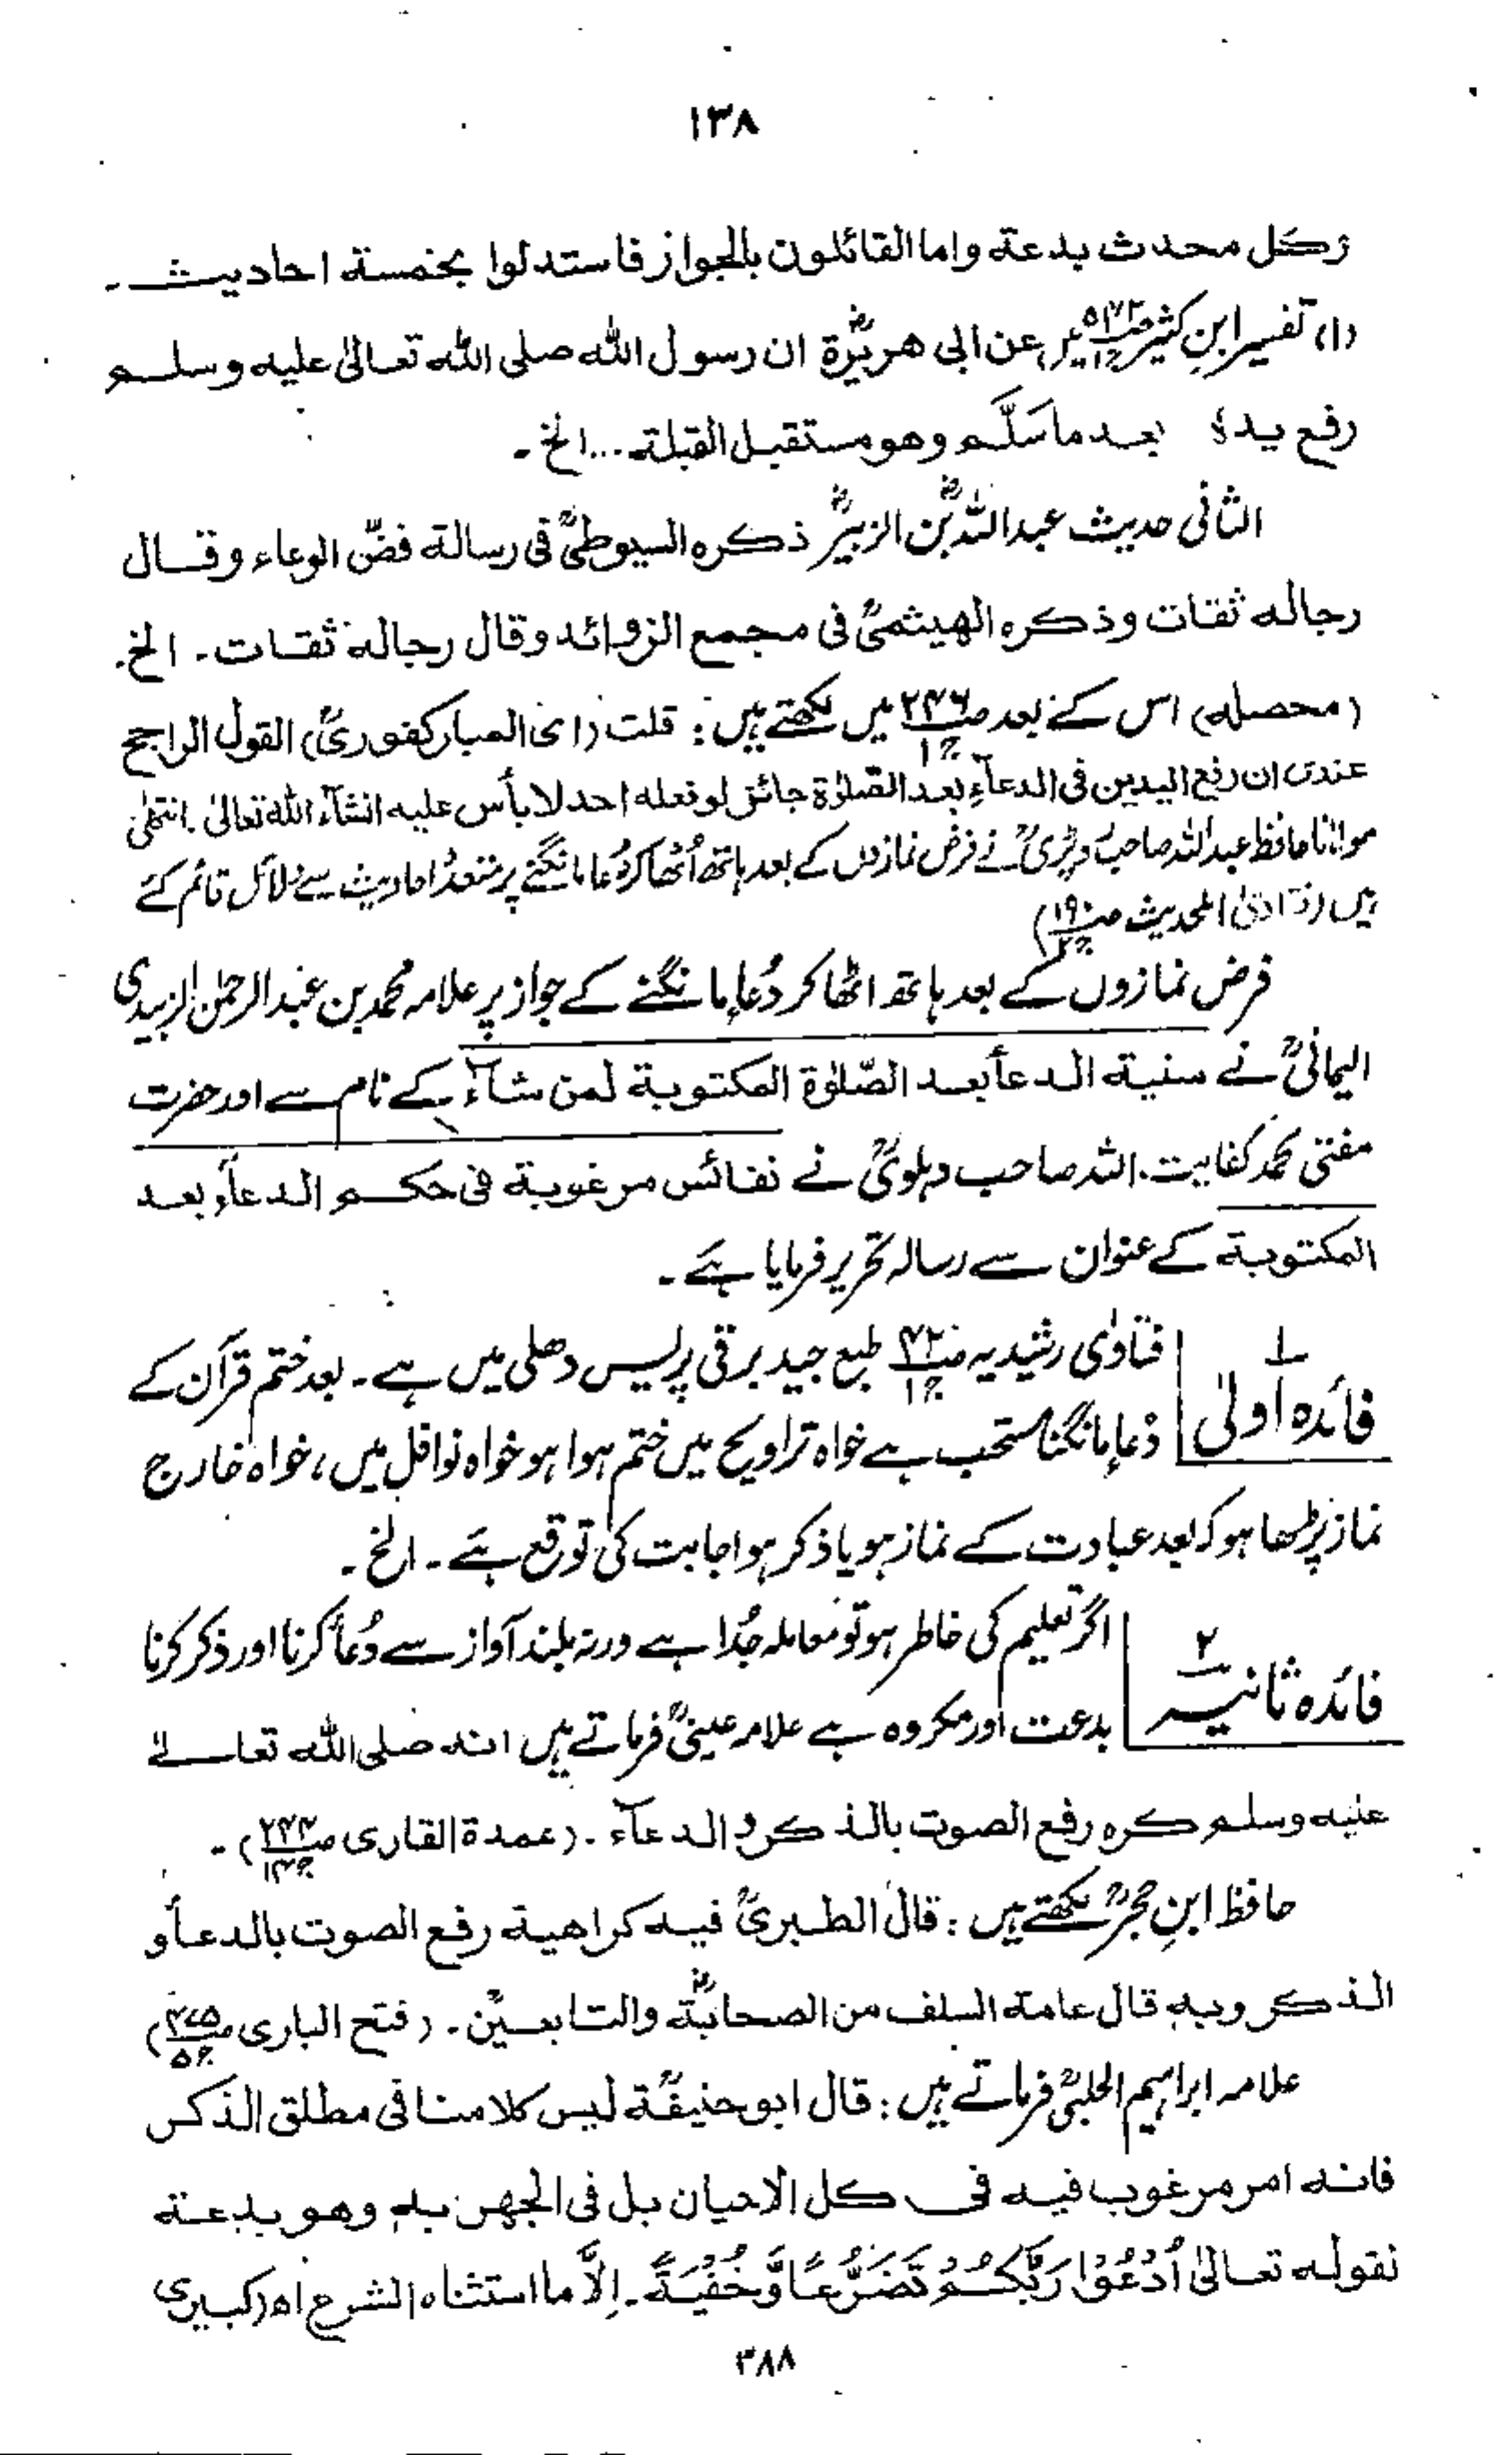 ۱۳۸
وکل محدث بدعة واما القائلون بالجواز فاستدلوا بخمسة احادیث ۔
(۱) تفسیر ابنِ کثیر میں عن ابی ھریرۃؓ ان رسول اللہ صلی اللہ تعالیٰ علیہ وسلم
رفع یدہٗ بعد ما سَلَّم وھو مستقبل القبلة ... الخ ۔
الثانی حدیث عبداللہؓ بن الزبیرؓ ذکرہ السیوطیؒ فی رسالة فضّ الوعاء وقال
رجالہ ثقات وذکرہ الھیثمیؒ فی مجمع الزوائد وقال رجالہ ثقات ۔ الخ.
(محصلہ) اس کے بعد ص۲۴۶ ج۱ میں لکھتے ہیں : قلت (ای المبارکفوریؒ) القول الراجح
عندی ان رفع الیدین فی الدعآءِ بعد الصّلوٰۃ جائز لو فعلہ احد لا بأس علیہ انشآء اللہ تعالیٰ . انتھٰی
مولانا حافظ عبداللہ صاحب روپڑیؒ نے فرض نمازوں کے بعد ہاتھ اُٹھا کر دُعا مانگنے پر متعدد احادیث سے دلائل قائم کئے
ہیں (فتاویٰ اہلحدیث ص۱۹۰ ج۲)
فرض نمازوں کے بعد ہاتھ اٹھا کر دُعا مانگنے کے جواز پر علامہ محمد بن عبدالرحمٰن الزبیدی
الیمانیؒ نے سنیة الدعأ بعد الصّلوٰۃ المکتوبة لمن شآء کے نام سے اور حضرت
مفتی محمد کفایت اللہ صاحب دہلویؒ نے نفائس مرغوبة فی حکم الدعآء بعد
المکتوبة کے عنوان سے رسالہ تحریر فرمایا ہے ۔
۱ فائدہ اولیٰ فتاوٰی رشیدیہ ص۴۲ ج۱ طبع جید برقی پریس دھلی میں ہے ۔ بعد ختم قرآن کے
دُعا مانگنا مستحب ہے خواہ تراویح میں ختم ہوا ہو خواہ نوافل میں ، خواہ خارج
نماز پڑھا ہو کہ بعد عبادت کے نماز ہو یا ذکر ہو اجابت کی توقع ہے ۔ الخ ۔
۲ فائدہ ثانیہ اگر تعلیم کی خاطر ہو تو معاملہ جُدا ہے ورنہ بلند آواز سے دُعا کرنا اور ذکر کرنا
بدعت اور مکروہ ہے علامہ عینیؒ فرماتے ہیں انہ صلی اللہ تعالےٰ
علیہ وسلم کرہ رفع الصوت بالذکر و الدعآء ۔ (عمدۃ القاری ص۲۴۴ ج۱۴) ۔
حافظ ابنِ حجرؒ لکھتے ہیں : قال الطبریؒ فیہ کراھیة رفع الصوت بالدعأ و
الذکر وبہٖ قال عامة السلف من الصحابةؓ والتابعینؒ ۔ (فتح الباری ج۵)
علامہ ابراہیم الحلبیؒ فرماتے ہیں : قال ابو حنیفةؒ لیس کلامنا فی مطلق الذکر
فانہ امر مرغوب فیہ فی کل الاحیان بل فی الجھر بہٖ وھو بدعة
لقولہ تعالیٰ اُدْعُوْا رَبَّکُمْ تَضَرُّعًا وَّخُفْیَةً ۔ اِلَّا ما استثناہ الشرع اھ (کبیری
۳۸۸